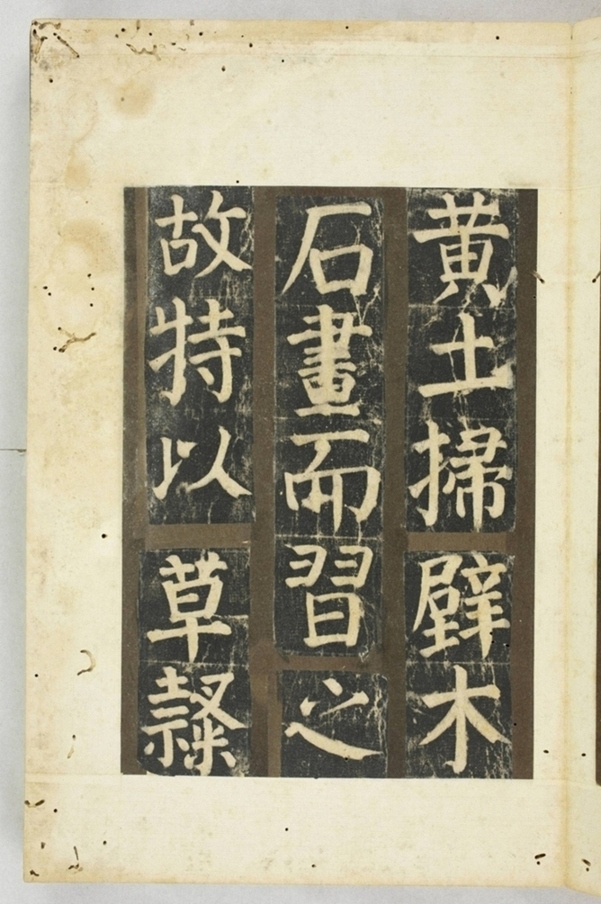 黄土掃壁木
石畫而習之
故特以草隸